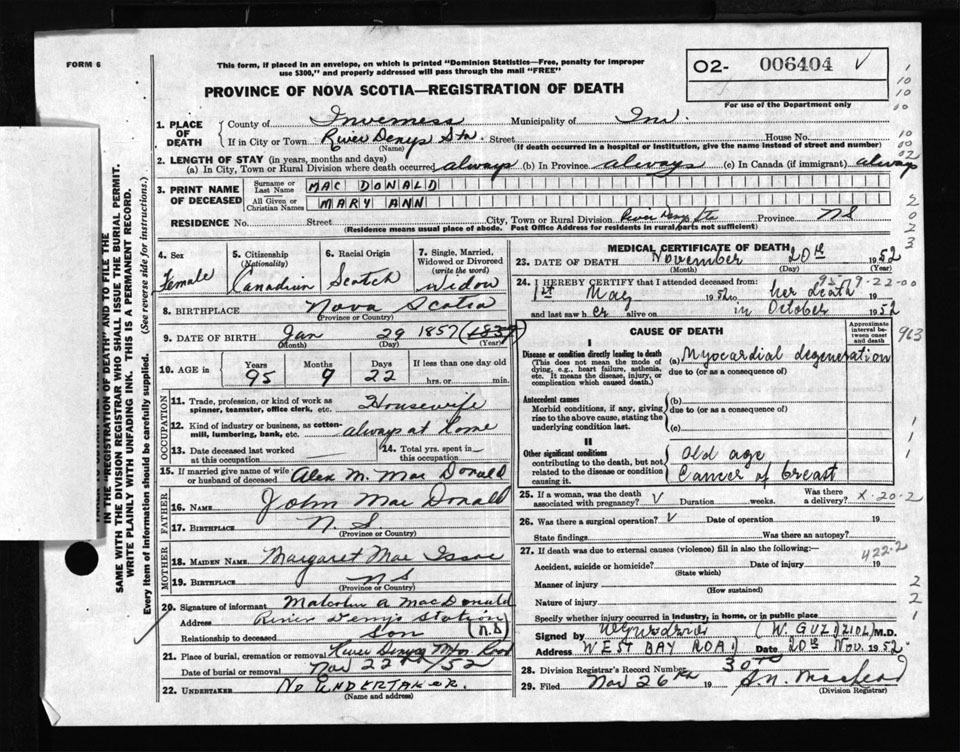 FORM 6
This form, if placed in an envelope, on which is printed "Dominion Statistics—Free, penalty for improper
use $300," and properly addressed will pass through the mail "FREE"
PROVINCE OF NOVA SCOTIA—REGISTRATION OF DEATH
O2- 006404 V
For use of the Department only
1. PLACE OF DEATH
County of Inverness Municipality of Inv.
If in City or Town River Denys Stn. Street House No.
(Name) (If death occurred in a hospital or institution, give the name instead of street and number)
2. LENGTH OF STAY (in years, months and days)
(a) In City, Town or Rural Division where death occurred always (b) In Province always (c) In Canada (if immigrant) always
3. PRINT NAME OF DECEASED
Surname or Last Name MAC DONALD
All Given or Christian Names MARY ANN
RESIDENCE No. Street City, Town or Rural Division River Denys Stn Province NS
(Residence means usual place of abode. Post Office Address for residents in rural parts not sufficient)
4. Sex Female
5. Citizenship (Nationality) Canadian
6. Racial Origin Scotch
7. Single, Married, Widowed or Divorced (write the word) Widow
8. BIRTHPLACE Nova Scotia
(Province or Country)
9. DATE OF BIRTH Jan 29 1857
(Month) (Day) (Year)
10. AGE in Years 95 Months 9 Days 22 If less than one day old hrs. or min.
OCCUPATION
11. Trade, profession, or kind of work as spinner, teamster, office clerk, etc. Housewife
12. Kind of industry or business, as cotton-mill, lumbering, bank, etc. always at home
13. Date deceased last worked at this occupation
14. Total yrs. spent in this occupation
15. If married give name of wife or husband of deceased Alex M. Mac Donald
FATHER
16. NAME John Mac Donald
17. BIRTHPLACE N. S.
(Province or Country)
MOTHER
18. MAIDEN NAME Margaret Mac Issac
19. BIRTHPLACE NS
(Province or Country)
20. Signature of informant Malcolm A MacDonald
Address River Denys Station
Relationship to deceased Son
21. Place of burial, cremation or removal River Denys Road
Date of burial or removal Nov 22nd/52
22. UNDERTAKER NO UNDERTAKER.
(Name and address)
MEDICAL CERTIFICATE OF DEATH
23. DATE OF DEATH November 20th 1952
(Month) (Day) (Year)
24. I HEREBY CERTIFY that I attended deceased from:
1st May 1952 to her death 19
and last saw her alive on in October 1952
95-9-22-00
CAUSE OF DEATH
Approximate interval between onset and death
963
I
Disease or condition directly leading to death
(This does not mean the mode of dying, e.g., heart failure, asthenia, etc. It means the disease, injury, or complication which caused death.)
(a) Myocardial degeneration
due to (or as a consequence of)
Antecedent causes
Morbid conditions, if any, giving rise to the above cause, stating the underlying condition last.
(b)
due to (or as a consequence of)
(c)
II
Other significant conditions
contributing to the death, but not related to the disease or condition causing it.
Old age
Cancer of breast
25. If a woman, was the death associated with pregnancy? V Duration weeks. Was there a delivery? X-20-2
26. Was there a surgical operation? V Date of operation 19
State findings Was there an autopsy?
27. If death was due to external causes (violence) fill in also the following:—
422-2
Accident, suicide or homicide? Date of injury 19
(State which)
Manner of injury
(How sustained)
Nature of injury
Specify whether injury occurred in industry, in home, or in public place
Signed by (W. GUZDZIOL) M.D.
Address WEST BAY ROAD Date 20th Nov. 1952.
28. Division Registrar's Record Number
29. Filed Nov 26th 19
(Division Registrar)
IN THE "REGISTRATION OF DEATH" AND TO FILE THE
SAME WITH THE DIVISION REGISTRAR WHO SHALL ISSUE THE BURIAL PERMIT.
WRITE PLAINLY WITH UNFADING INK. THIS IS A PERMANENT RECORD.
Every item of information should be carefully supplied. (See reverse side for instructions.)